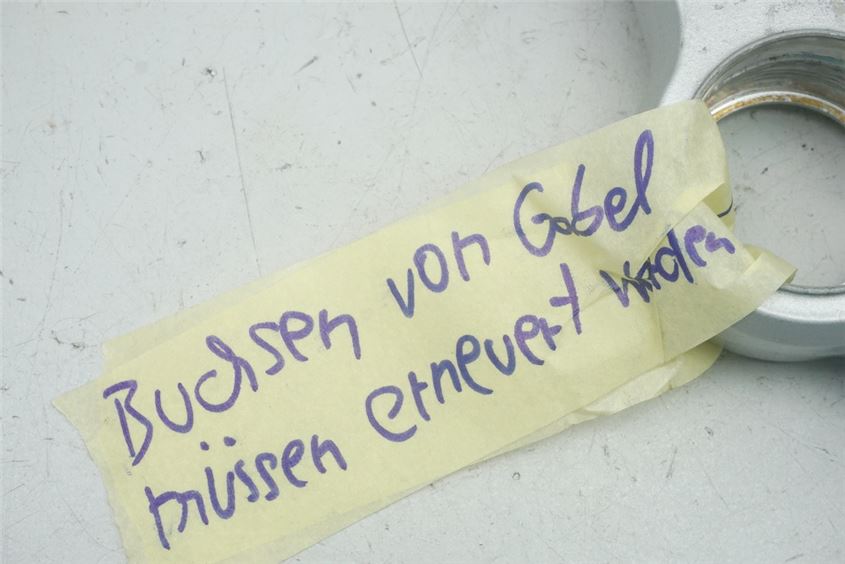 Buchsen von Gabel
müssen erneuert werden